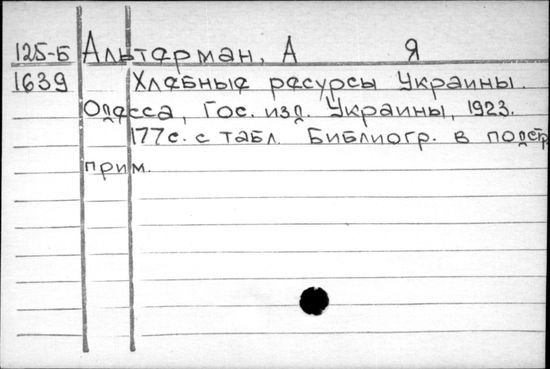 125-Б Альтерман, А Я
1639 Хлебные ресурсы Украины.
Одесса, Гос. изд. Украины, 1923.
177с. с табл. Библиогр. в подстр.
прим.